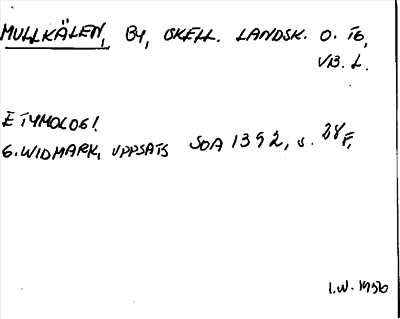 MULLKÄLEN, BY, SKELL. LANDSK. O. TG,
VB. L.
ETYMOLOGI
G. WIDMARK, UPPSATS SOA 1392, s. 28 F,
I.W. 1956